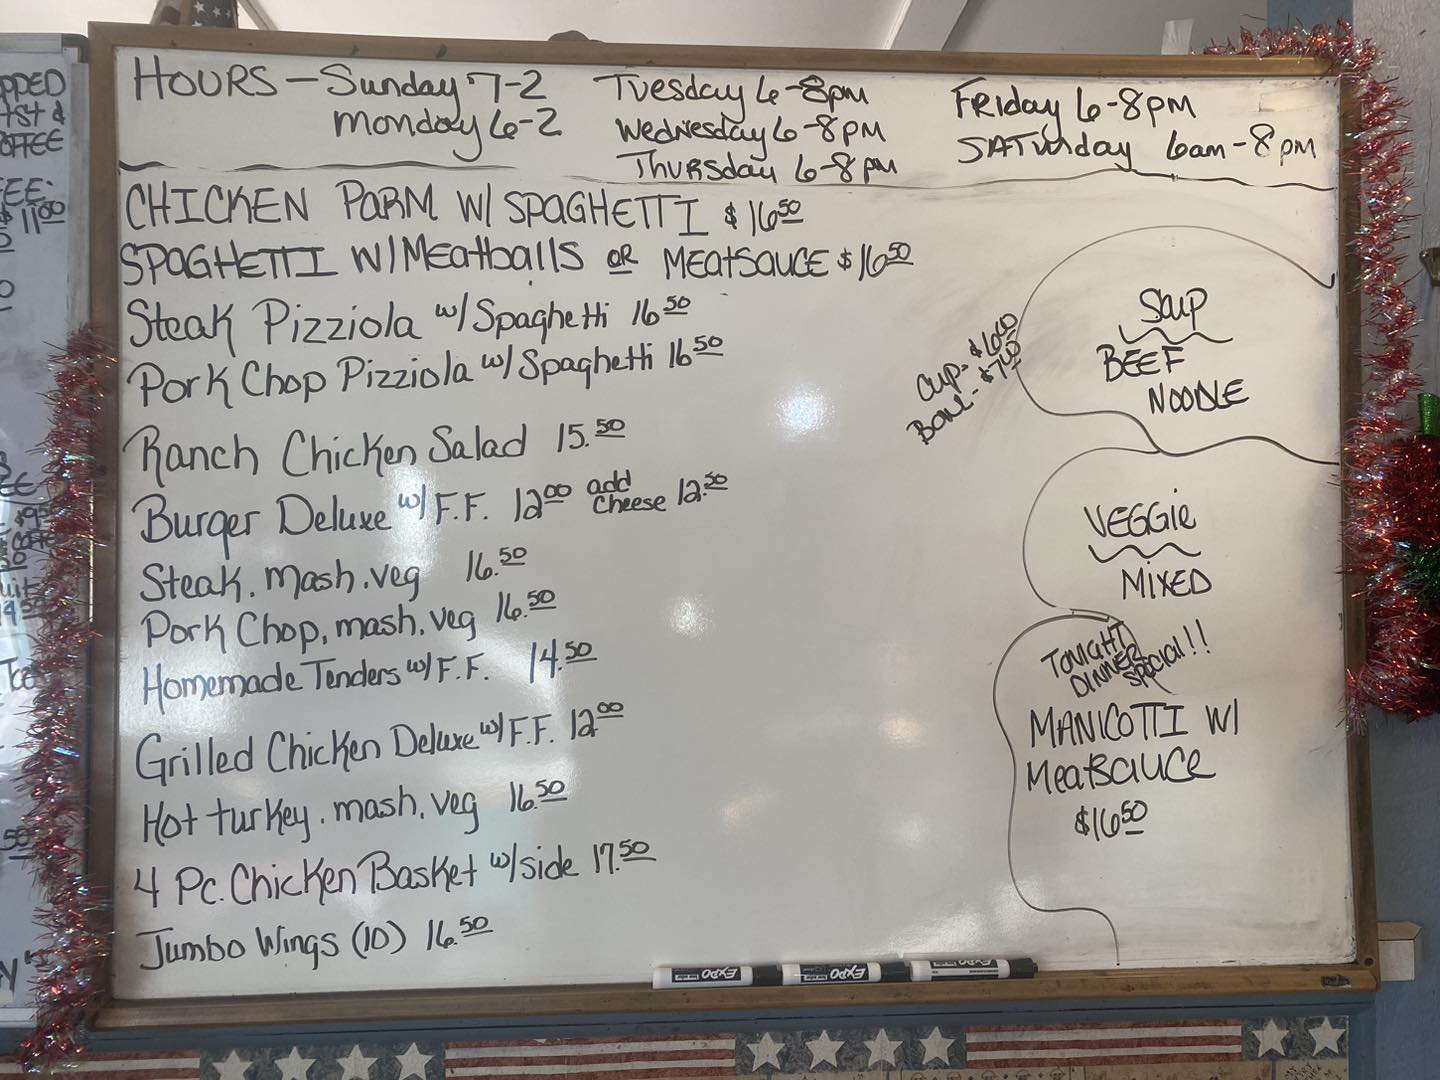 HOURS - Sunday 7-2
Monday 6-2
Tuesday 6-8pm
Wednesday 6-8pm
Thursday 6-8pm
Friday 6-8pm
Saturday 6am-8pm
CHICKEN PARM W/ SPAGHETTI $16.50
SPAGHETTI W/ Meatballs OR MEATSAUCE $16.50
Steak Pizziola w/ Spaghetti 16.50
Pork Chop Pizziola w/ Spaghetti 16.50
Ranch Chicken Salad 15.50
Burger Deluxe w/ F.F. 12.00 add Cheese 12.50
Steak, mash, veg 16.50
Pork Chop, mash, veg 16.50
Homemade Tenders w/ F.F. 14.50
Grilled Chicken Deluxe w/ F.F. 12.00
Hot turkey, mash, veg 16.50
4 Pc. Chicken Basket w/ side 17.50
Jumbo Wings (10) 16.50
Soup
BEEF
NOODLE
Cup -
Bowl -
VEGGIE
MIXED
TONIGHT
DINNER
SPECIAL!!
MANICOTTI W/
Meatsauce
$16.50
EXPO
EXPO
EXPO
PPED
COFFEE
$11.00